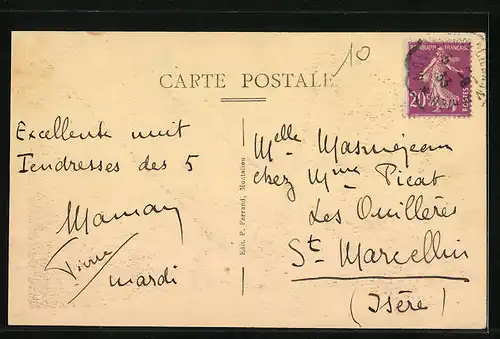 10
CARTE POSTALE
REPUBLIQUE FRANÇAISE
20c
POSTES
Excellente nuit
Tendresses des 5
Maman
Pierre
mardi
Edit. P. Ferrand, Montalieu
Melle Masmejean
chez Mme Picat
Les Ouillères
St Marcellin
(Isère)